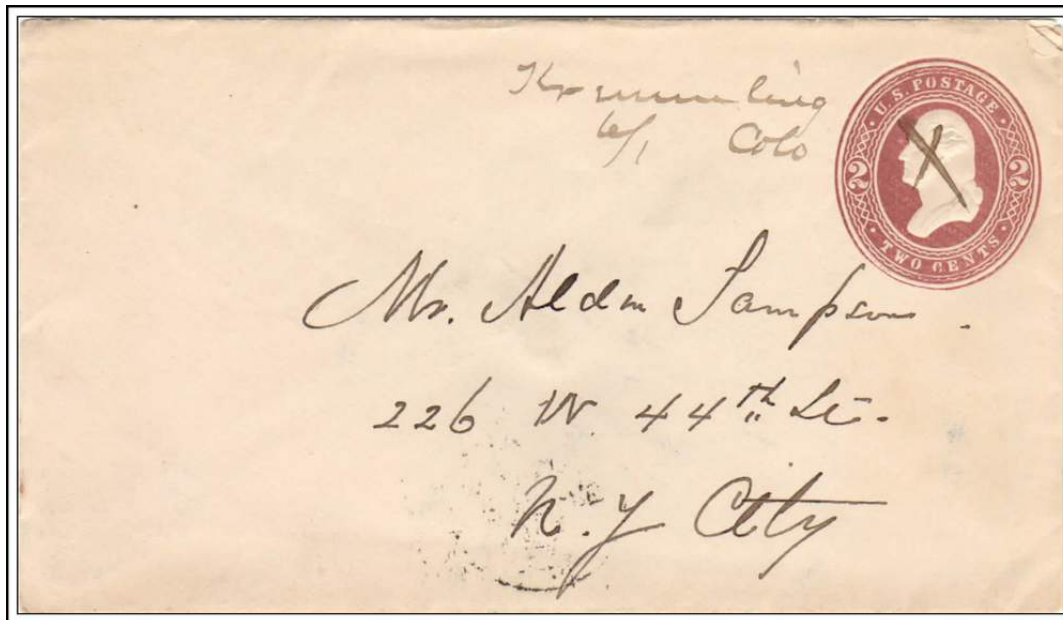 Kremmling
6/1 Colo
U.S. POSTAGE
2 2
TWO CENTS
Mr. Alden Sampson.
226 W. 44th St.
N. Y City